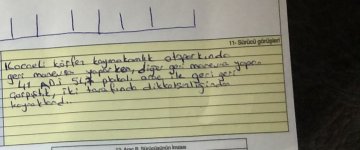 11- Sürücü görüşleri
Kocaeli körfez kaymakamlık otoparkında
geri manevra yaparken, diğer geri manevra yapan
41 plakalı araç ile geri geri
çarpıştık, iki tarafında dikkatsizliğinden
kaynaklandı.